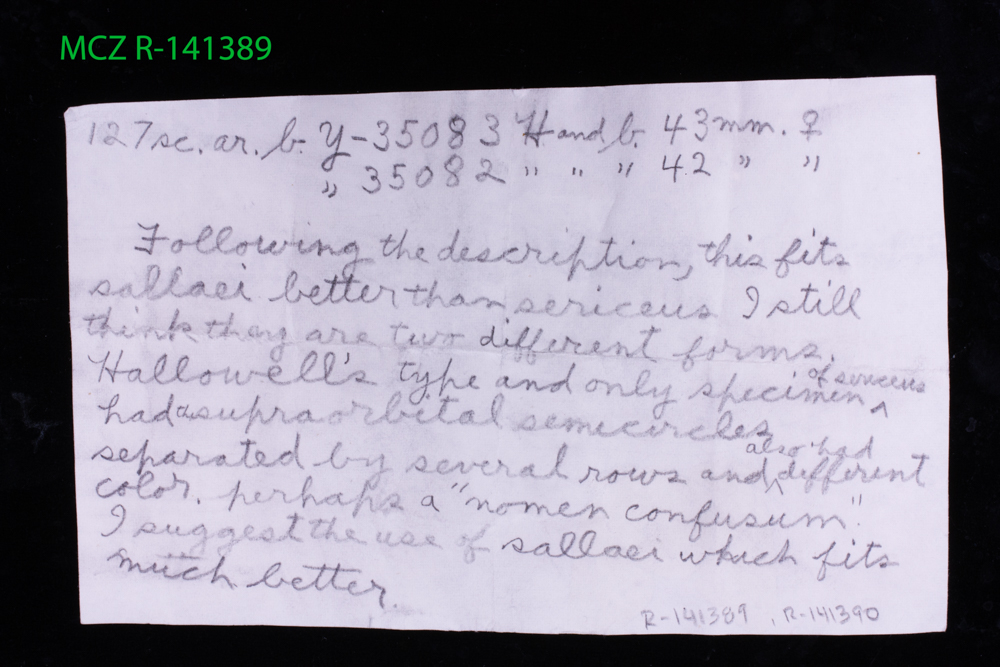 MCZ R-141389
127 sc. ar. b. Y-35083 H and b. 43mm. ♀
" 35082 " " " 42 " "
Following the description, this fits
sallaei better than sericeus I still
think they are two different forms.
Hallowell's type and only specimen ^ of sericeus
had supraorbital semicircles
separated by several rows and ^ also had different
color. perhaps a "nomen confusum".
I suggest the use of sallaei which fits
much better.
R-141389 , R-141390